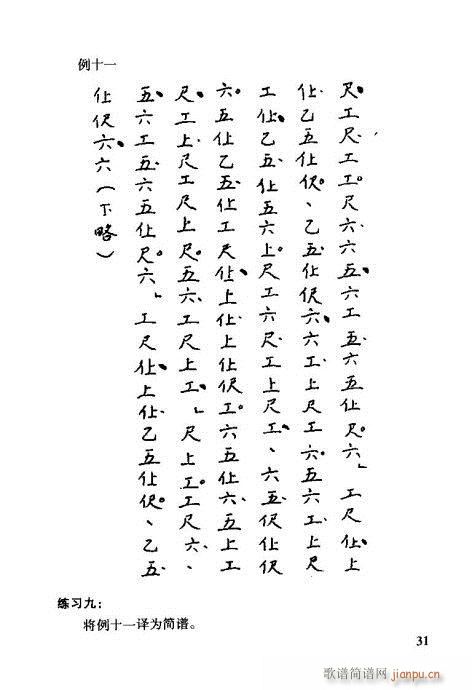 例十一
尺。工尺、工工。尺六、六五。六工五、六五仩尺。六、」工尺仩。上
仩、乙五仩伬。、乙五、仩伬六、六工、上尺工六。五六工、上尺
工仩。乙五、仩五六上。尺工六尺、工上尺工。、六五、伬仩伬
六。五仩乙五、仩工尺仩。上仩、上仩伬工。六五仩六、五上工
尺。工上、尺工尺上尺。五六、工尺上工。」尺上工。工尺六、、
五。六工五、六五仩尺。六、」工尺仩。上仩、乙五仩伬。、乙五、
仩伬六。六（下略）
练习九：
将例十一译为简谱。
31
歌谱简谱网
jianpu.cn